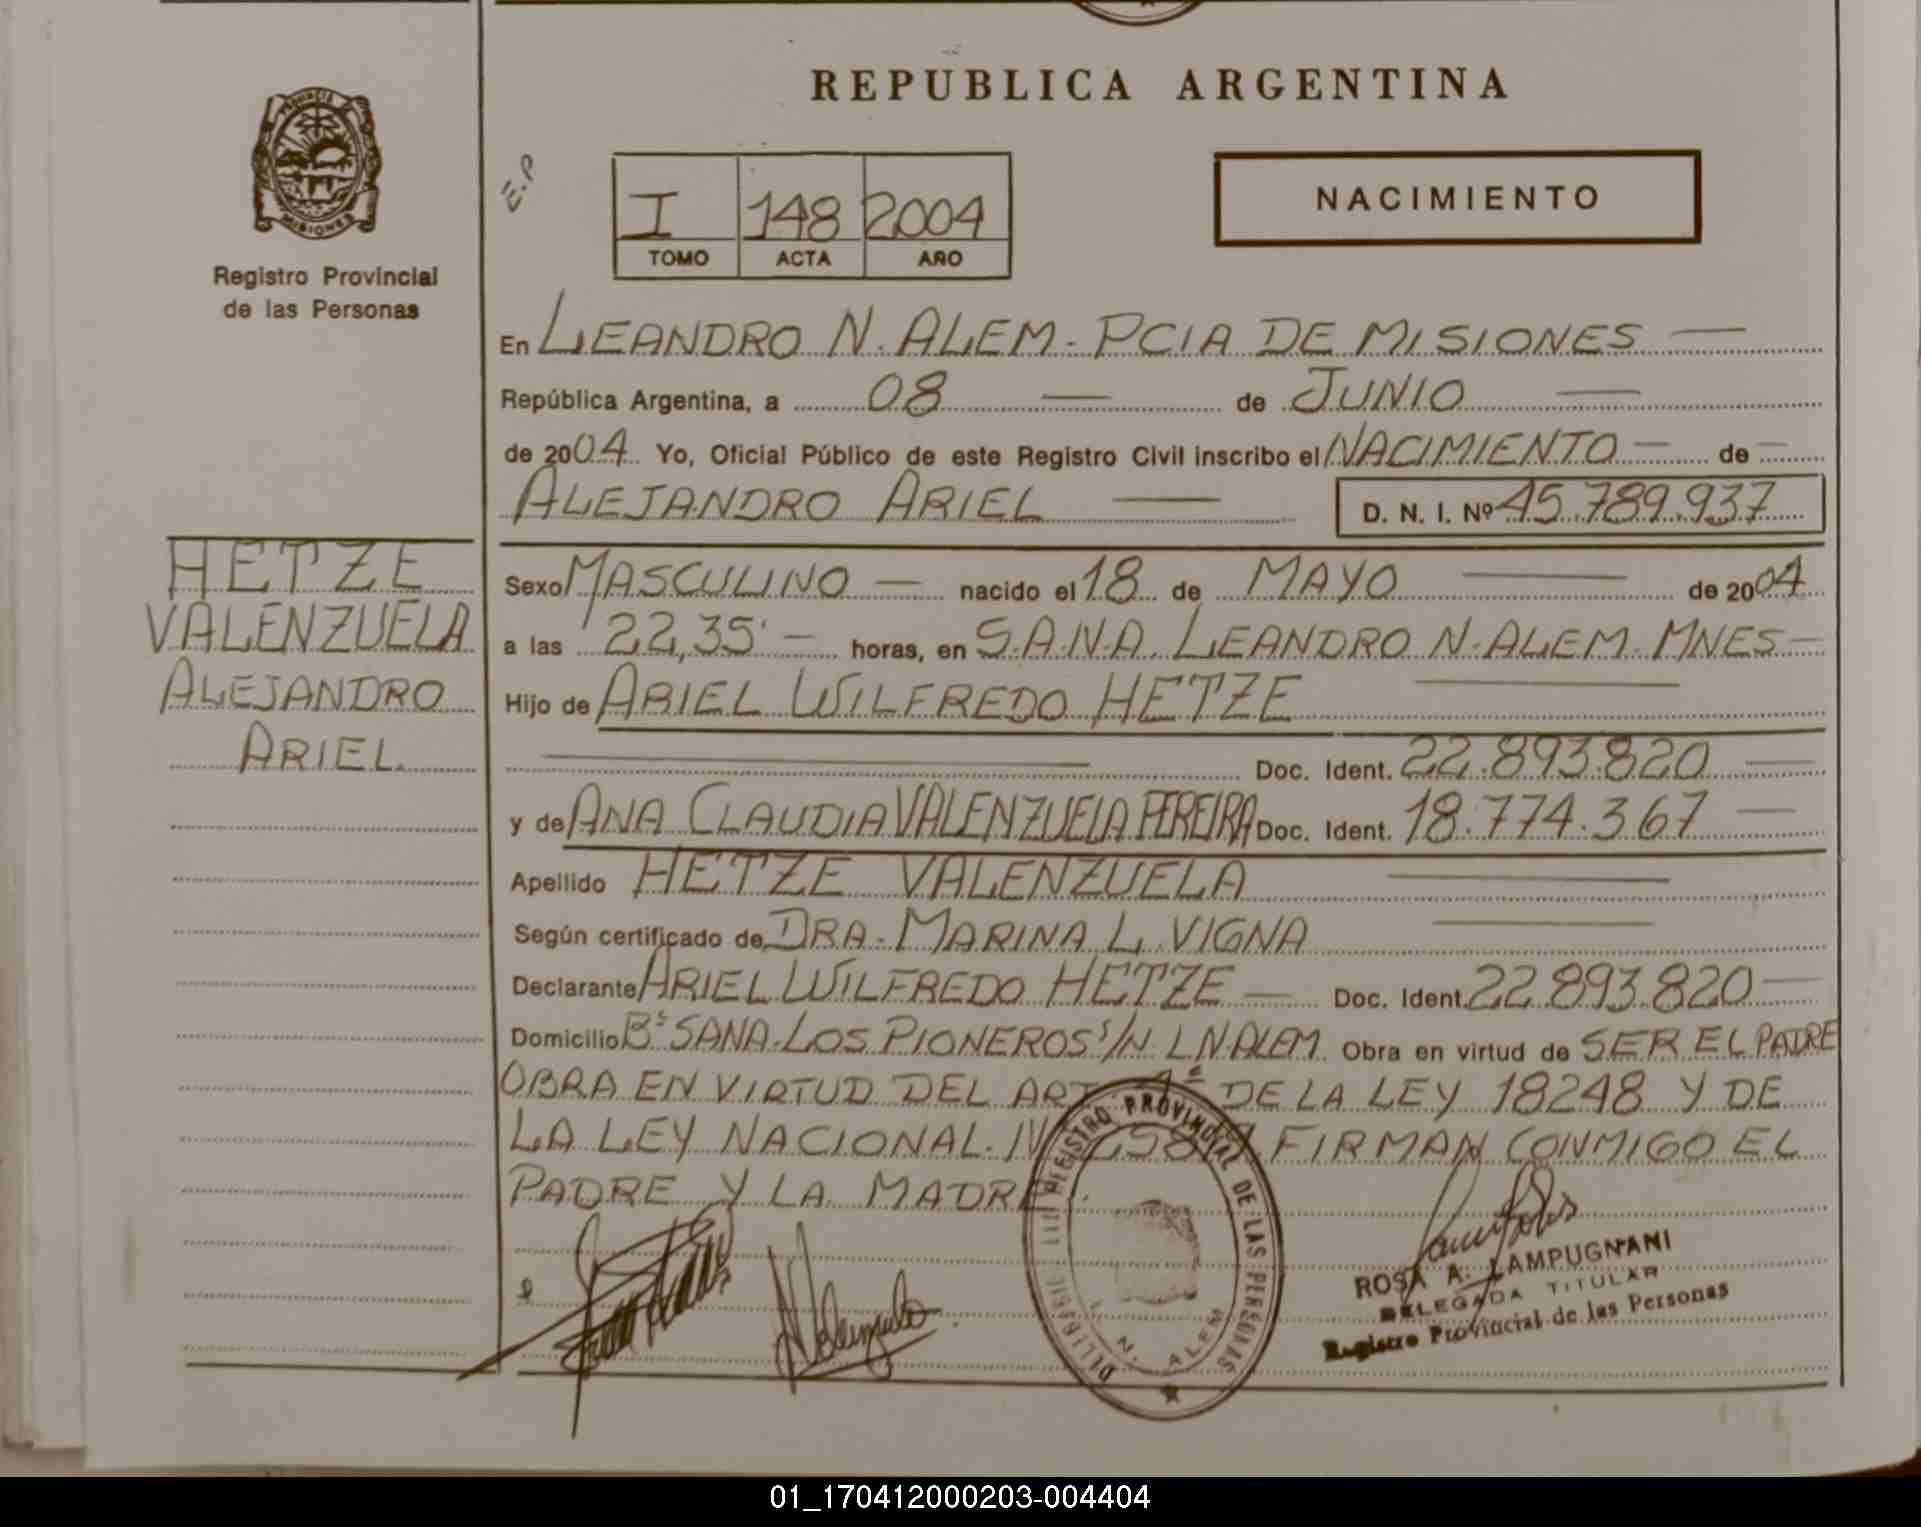 REPUBLICA ARGENTINA
PROVINCIA
MISIONES
Registro Provincial
de las Personas
E.P
I 148 2004
TOMO ACTA AÑO
NACIMIENTO
En LEANDRO N. ALEM - PCIA DE MISIONES
República Argentina, a 08 de JUNIO
de 2004 Yo, Oficial Público de este Registro Civil inscribo el NACIMIENTO de
ALEJANDRO ARIEL D. N. I. Nº 45.789.937
HETZE
VALENZUELA
ALEJANDRO
ARIEL
Sexo MASCULINO nacido el 18 de MAYO de 2004
a las 22,35' horas, en S.A.N.A. LEANDRO N. ALEM. MNES
Hijo de ARIEL WILFREDO HETZE
Doc. Ident. 22.893.820
y de ANA CLAUDIA VALENZUELA PEREIRA Doc. Ident. 18.774.367
Apellido HETZE VALENZUELA
Según certificado de DRA. MARINA L. VIGNA
Declarante ARIEL WILFREDO HETZE Doc. Ident. 22.893.820
Domicilio Bº SANA. LOS PIONEROS S/N. L N ALEM Obra en virtud de SER EL PADRE
OBRA EN VIRTUD DEL ART DE LA LEY 18248 Y DE
LA LEY NACIONAL FIRMAN CONMIGO EL
PADRE Y LA MADRE.
REGISTRO PROVINCIAL DE LAS PERSONAS
L. N. ALEM
Valenzuela
ROSA A. LAMPUGNANI
DELEGADA TITULAR
Registro Provincial de las Personas
01_170412000203-004404